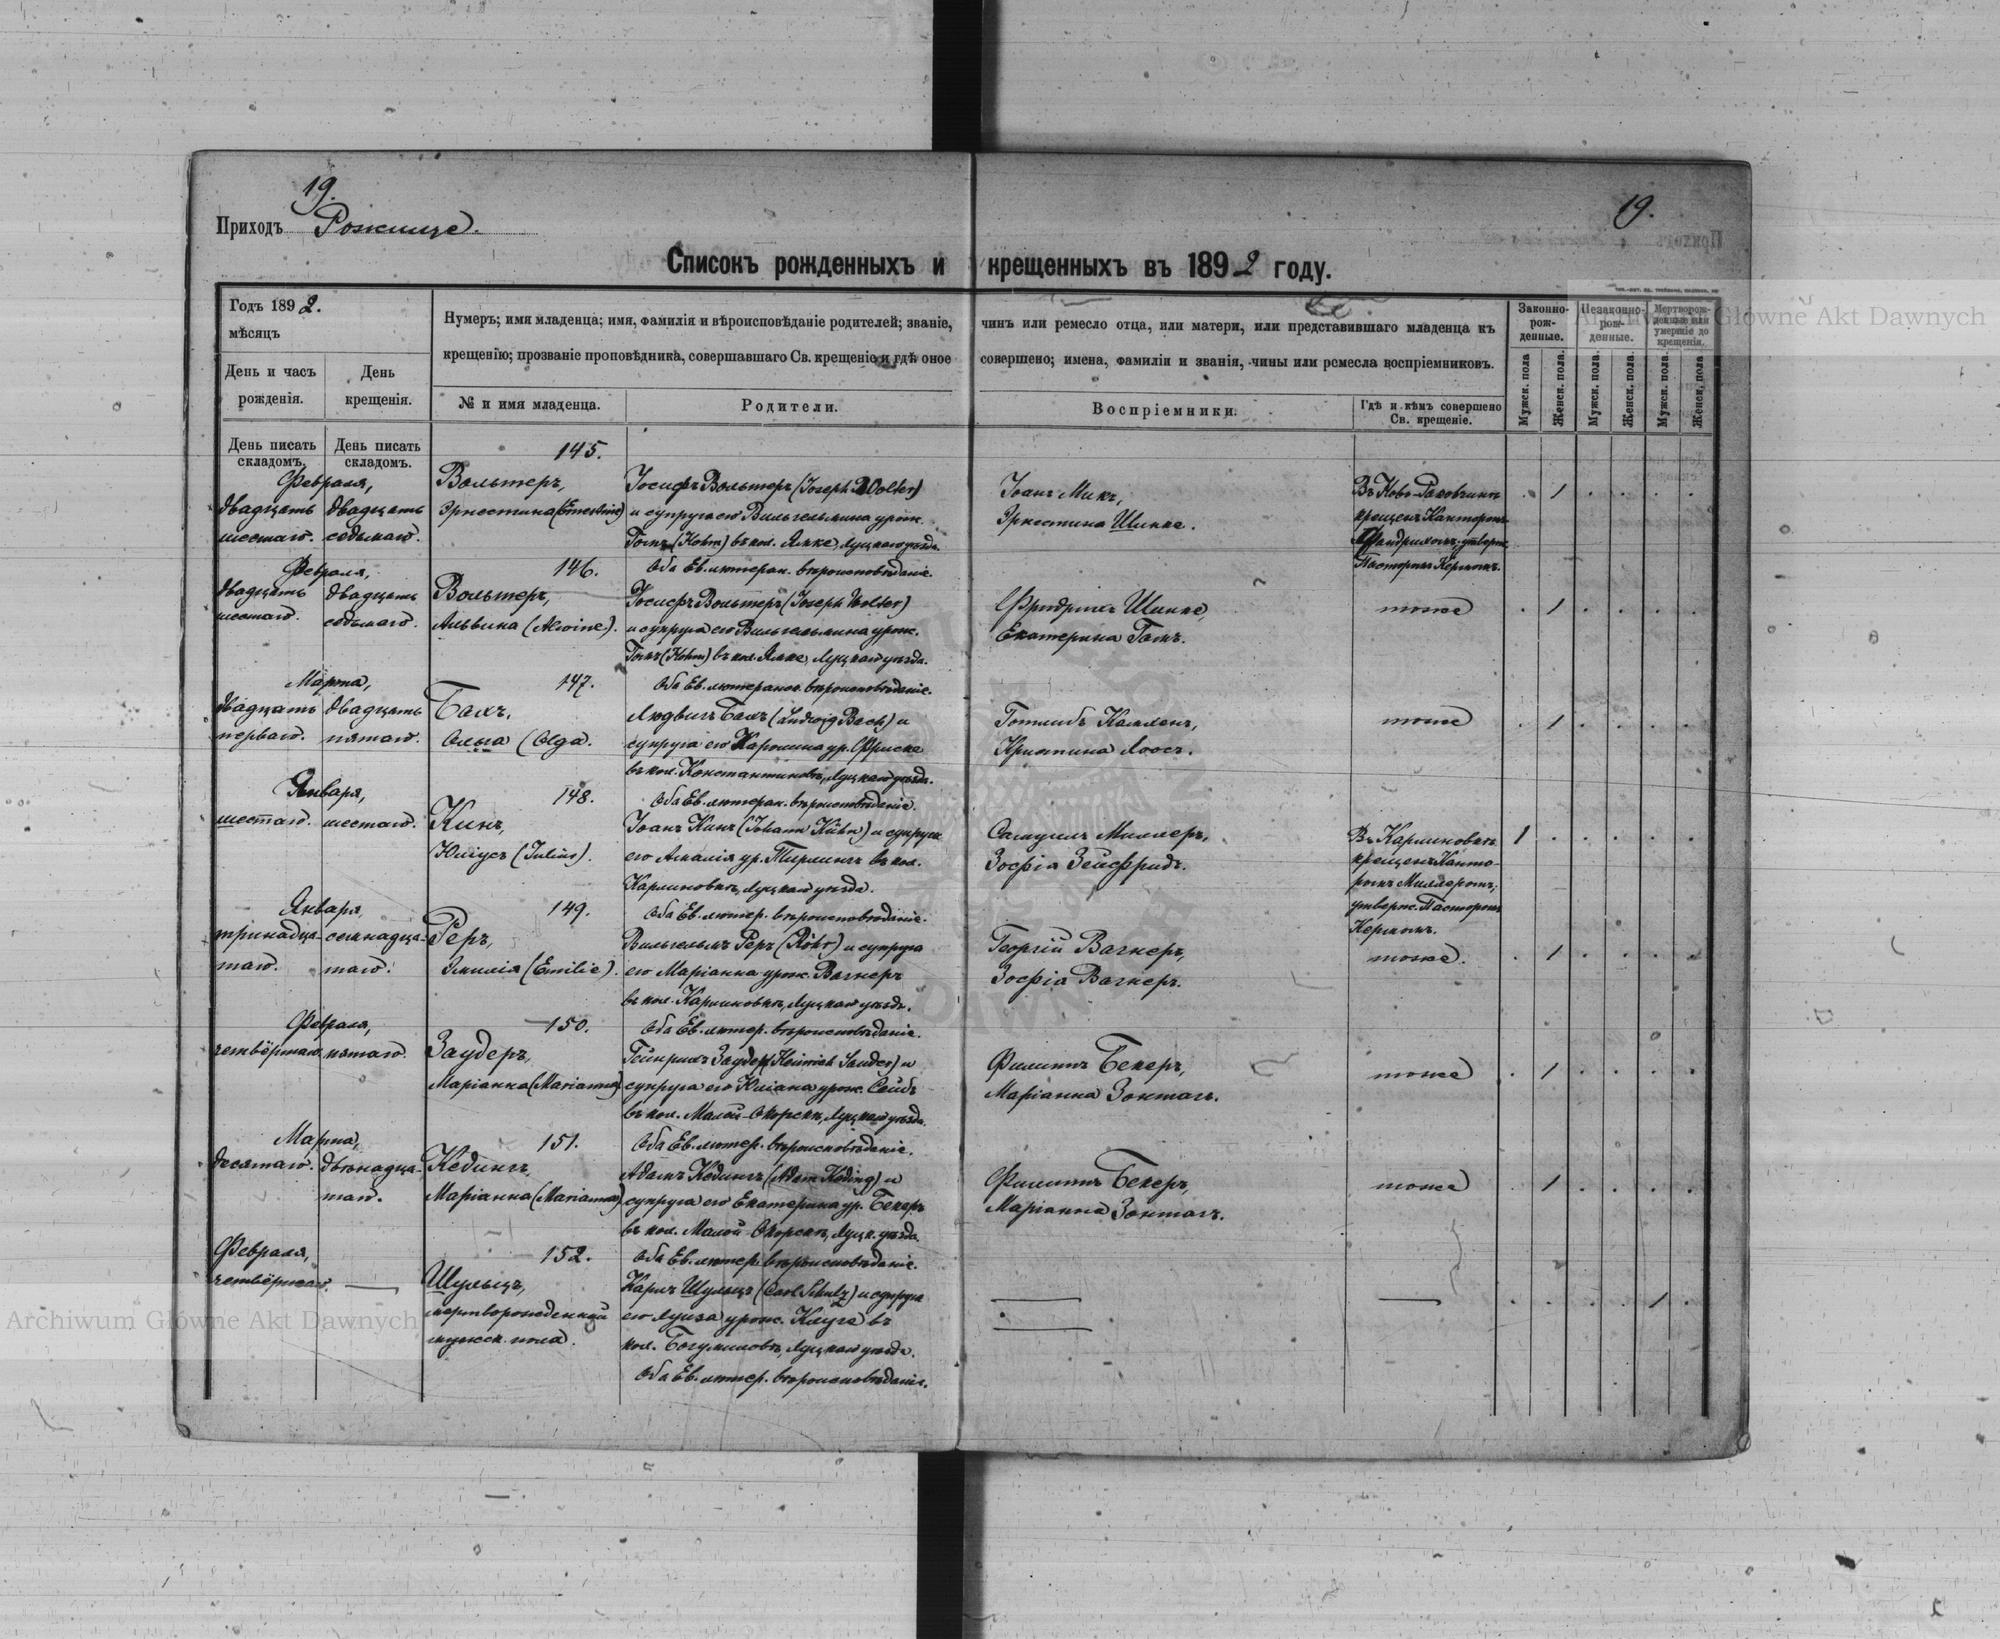 19.
Приходъ Рожище.
19.
Списокъ рожденныхъ и крещенныхъ въ 1892 году.
Годъ 1892.
мѣсяцъ
День и часъ рожденія.
День крещенія.
Нумеръ; имя младенца; имя, фамилія и вѣроисповѣданіе родителей; званіе, чинъ или ремесло отца, или матери, или представившаго младенца къ
крещенію; прозваніе проповѣдника, совершавшаго Св. крещеніе и гдѣ оное совершено; имена, фамиліи и званія, чины или ремесла воспріемниковъ.
№ и имя младенца.
Родители.
Воспріемники.
Гдѣ и кѣмъ совершено Св. крещеніе.
Законно-рож-денные.
Незаконно-рож-денные.
Мертворож-денные или умершіе до крещенія.
Мужск. пола
Женск. пола.
Мужск. пола.
Женск. пола.
Мужск. пола.
Женск. пола
День писать складомъ.
День писать складомъ.
145.
Февраля,
двадцать шестаго.
двадцать седьмаго.
Вольтеръ,
Эрнестина (Ernestine)
Іосифъ Вольтеръ (Joseph Wolter)
и супруга его Вильгельмина урож.
Гомъ (Hohm) въ кол. Ямке, Луцкаго уѣзда.
Оба Ев. лютеран. вѣроисповѣданіе.
Іоанъ Микъ,
Эрнестина Шинке.
крещенъ Канторомъ
Пасторомъ Кермомъ.
1
146.
Февраля,
двадцать шестаго.
двадцать седьмаго.
Вольтеръ,
Альвина (Alwine).
Іосифъ Вольтеръ (Joseph Wolter)
и супруга его Вильгельмина урож.
Гомъ (Hohm) въ кол. Ямке, Луцкаго уѣзда.
Оба Ев. лютеранск. вѣроисповѣданіе.
Фридрихъ Шинке,
Екатерина Гомъ.
тоже
1
147.
Марта,
двадцать перваго.
двадцать пятаго.
Бахъ,
Ольга (Olga.
Людвигъ Бахъ (Ludwig Bach) и
супруга его Каролина ур. Фриске
въ кол. Константиновкѣ, Луцкаго уѣзда.
Оба Ев. лютеран. вѣроисповѣданіе.
Готлибъ
Христина Лоосъ.
тоже
1
148.
Января,
шестаго.
шестаго.
Кинъ,
Юліусъ (Julius).
Іоанъ Кинъ (Johann Kühn) и супруга
его Амалія ур. Тирлингъ въ кол.
Карлиновкѣ, Луцкаго уѣзда.
Оба Ев. лютер. вѣроисповѣданіе.
Самуилъ Миллеръ,
Зосфія Зейсфридъ.
Въ Карлиновкѣ
крещенъ Канто-
ромъ Миллеромъ,
утвержд. Пасторомъ
Кермомъ.
1
149.
Января,
тринадца-таго.
семнадца-таго.
Реръ,
Эмилія (Emilie).
Вильгельмъ Реръ (Röhr) и супруга
его Маріанна урож. Вагнеръ
въ кол. Карлиновкѣ, Луцкаго уѣзда.
Оба Ев. лютер. вѣроисповѣданіе.
Георгій Вагнеръ,
Зосфія Вагнеръ.
тоже.
1
150.
Февраля,
четвёртаго.
пятаго.
Заудеръ,
Маріанна (Marianna)
Гейнрихъ Заудеръ (Heinrich Sauder) и
супруга его Юліана урож. Сейбъ
въ кол. Малой-Окорскѣ, Луцкаго уѣзда.
Оба Ев. лютер. вѣроисповѣданіе.
Филиппъ Бекеръ,
Маріанна Зонтагъ.
тоже
1
151.
Марта,
десятаго.
двѣнадца-таго.
Кедингъ,
Маріанна (Marianna)
Адамъ Кедингъ (Adam Keding) и
супруга его Екатерина ур. Бекеръ
въ кол. Малой Окорскѣ, Луцк. уѣзда.
Оба Ев. лютер. вѣроисповѣданіе.
Филиппъ Бекеръ,
Маріанна Зонтагъ.
тоже
1
152.
Февраля,
четвёртаго.
Шульцъ,
мертворожденный
мужск. пола.
Карлъ Шульцъ (Carl Schulz) и супруга
его Луиза урож. Клуге въ
кол. Богумиловкѣ, Луцкаго уѣзда.
Оба Ев. лютер. вѣроисповѣданіе.
1
Archiwum Główne Akt Dawnych
Archiwum Główne Akt Dawnych